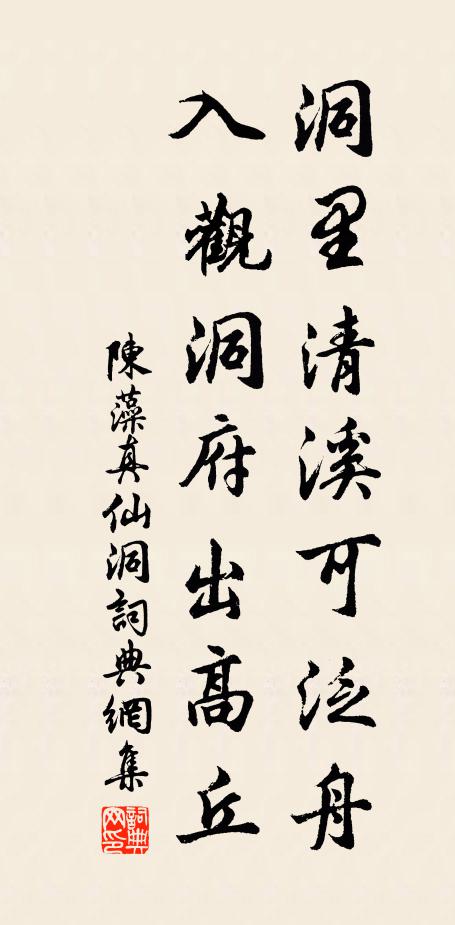 洞里清溪可泛舟
入觀洞府出高丘
陳藻真仙洞詞典網集
詞典
网印